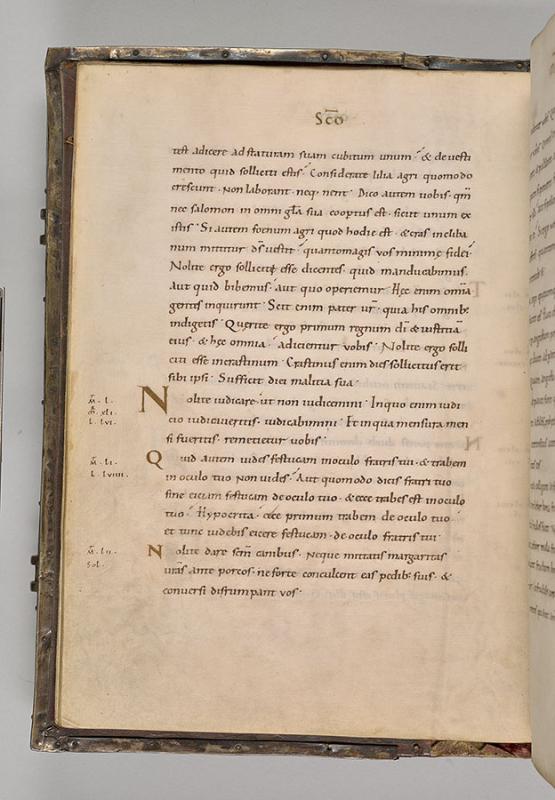 Sc̄o
test adicere ad staturam suam cubitum unum · & de uesti
mento quid solliciti estis · Considerate lilia agri quomodo
crescunt · Non laborant · neq· nent · Dico autem uobis · qm̄
nec salomon in omni gl̄a sua coopertus est · sicut unum ex
istis · Si autem foenum agri quod hodie est · & cras in cliba
num mittitur d̄s uestit · quanto magis uos minimę fidei ·
Nolite ergo solliciti esse dicentes · quid manducabimus ·
aut quid bibemus · aut quo operiemur · Hęc enim omīa
gentes inquirunt · Scit enim pater ur̄ · quia his omnib·
indigetis · Querite ergo primum regnum dī & iustitiā
eius · & hęc omnia · adicientur uobis · Nolite ergo solli
citi esse incrastinum · Crastinus enim dies sollicitus erit
sibi ipsi · Sufficit diei malitia sua ·
Nolite iudicare · ut non iudicemini · In quo enim iudi
cio iudicaueritis · iudicabimini · Et in qua mensura men
si fueritis · remetietur uobis ·
Quid autem uides festucam in oculo fratris tui · & trabem
in oculo tuo non uides · Aut quomodo dicis fratri tuo
sine eiciam festucam de oculo tuo · & ecce trabes est in oculo
tuo · Hypocrita · eice primum trabem de oculo tuo ·
et tunc uidebis eicere festucam · de oculo fratris tui ·
Nolite dare sc̄m canibus · Neque mittatis margaritas
ur̄as ante porcos · ne forte conculcent eas pedib· suis · &
conuersi disrumpant uos ·
m̄ · l ·
m̄r · xli ·
l · lvi ·
m̄ · li ·
l · lviiii ·
m̄ · lii ·
sol ·